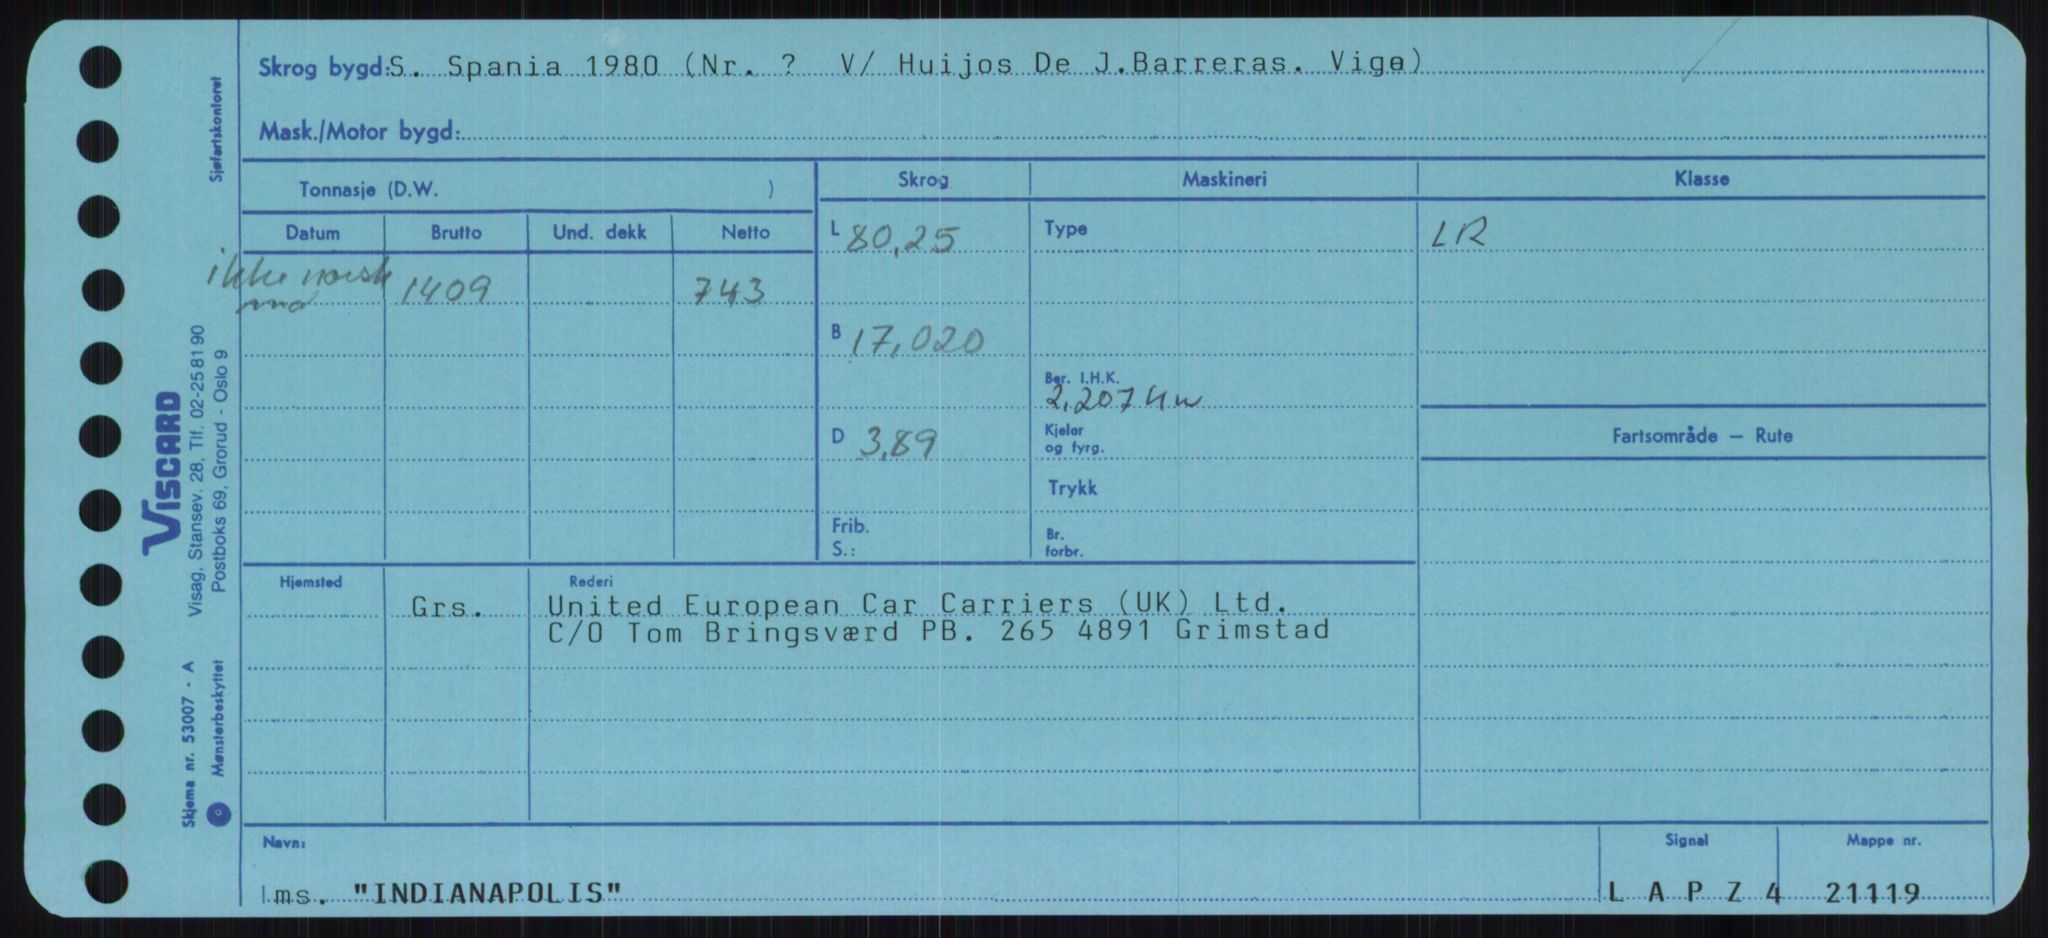 Skrog bygd: S. Spania 1980 (Nr. ? V/ Huijos De J.Barreras. Vigo)
Mask./Motor bygd:
Tonnasje (D.W. )
Skrog Maskineri Klasse
Datum Brutto Und. dekk Netto
L 80,25 Type LR
ikke norsk 1409 743
B 17,020
Ber. I.H.K.
2,207 Kw
D 3,89 Kjeler
og fyrg.
Fartsområde – Rute
Trykk
Frib. Br.
S.: forbr.
Hjemsted Rederi
Grs. United European Car Carriers (UK) Ltd.
C/O Tom Bringsværd PB. 265 4891 Grimstad
Navn: Signal Mappe nr.
ms. "INDIANAPOLIS" L A P Z 4 21119
Sjøfartskontoret
VISCARD
Visag, Stansev. 28, Tlf. 02-25 81 90
Postboks 69, Grorud - Oslo 9
Skjema nr. 53007 - A
Mønsterbeskyttet